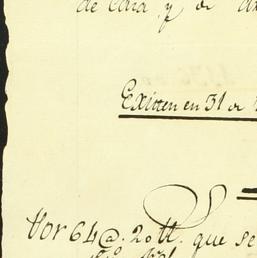 de Cara y de
Existen en 31 de
Por 64@. 20 tt. que se